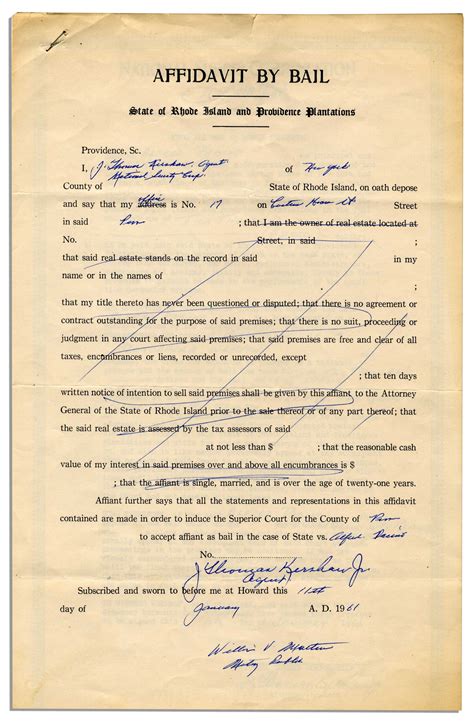 AFFIDAVIT BY BAIL
State of Rhode Island and Providence Plantations
Providence, Sc.
I, J. Thomas Kershaw, Agent of New York
National Surety Corp
County of State of Rhode Island, on oath depose
office
and say that my address is No. 17 on Custom House St Street
in said Prov ; that I am the owner of real estate located at
No. Street, in said ;
that said real estate stands on the record in said in my
name or in the names of
.
that my title thereto has never been questioned or disputed; that there is no agreement or
contract outstanding for the purpose of said premises; that there is no suit, proceeding or
judgment in any court affecting said premises; that said premises are free and clear of all
taxes, encumbrances or liens, recorded or unrecorded, except
; that ten days
written notice of intention to sell said premises shall be given by this affiant to the Attorney
General of the State of Rhode Island prior to the sale thereof or of any part thereof; that
the said real estate is assessed by the tax assessors of said
at not less than $ ; that the reasonable cash
value of my interest in said premises over and above all encumbrances is $
; that the affiant is single, married, and is over the age of twenty-one years.
Affiant further says that all the statements and representations in this affidavit
contained are made in order to induce the Superior Court for the County of Prov
to accept affiant as bail in the case of State vs. Alfred
No.
J Thomas Kershaw Jr.
Agent
Subscribed and sworn to before me at Howard this 11th
day of January A. D. 1961
V